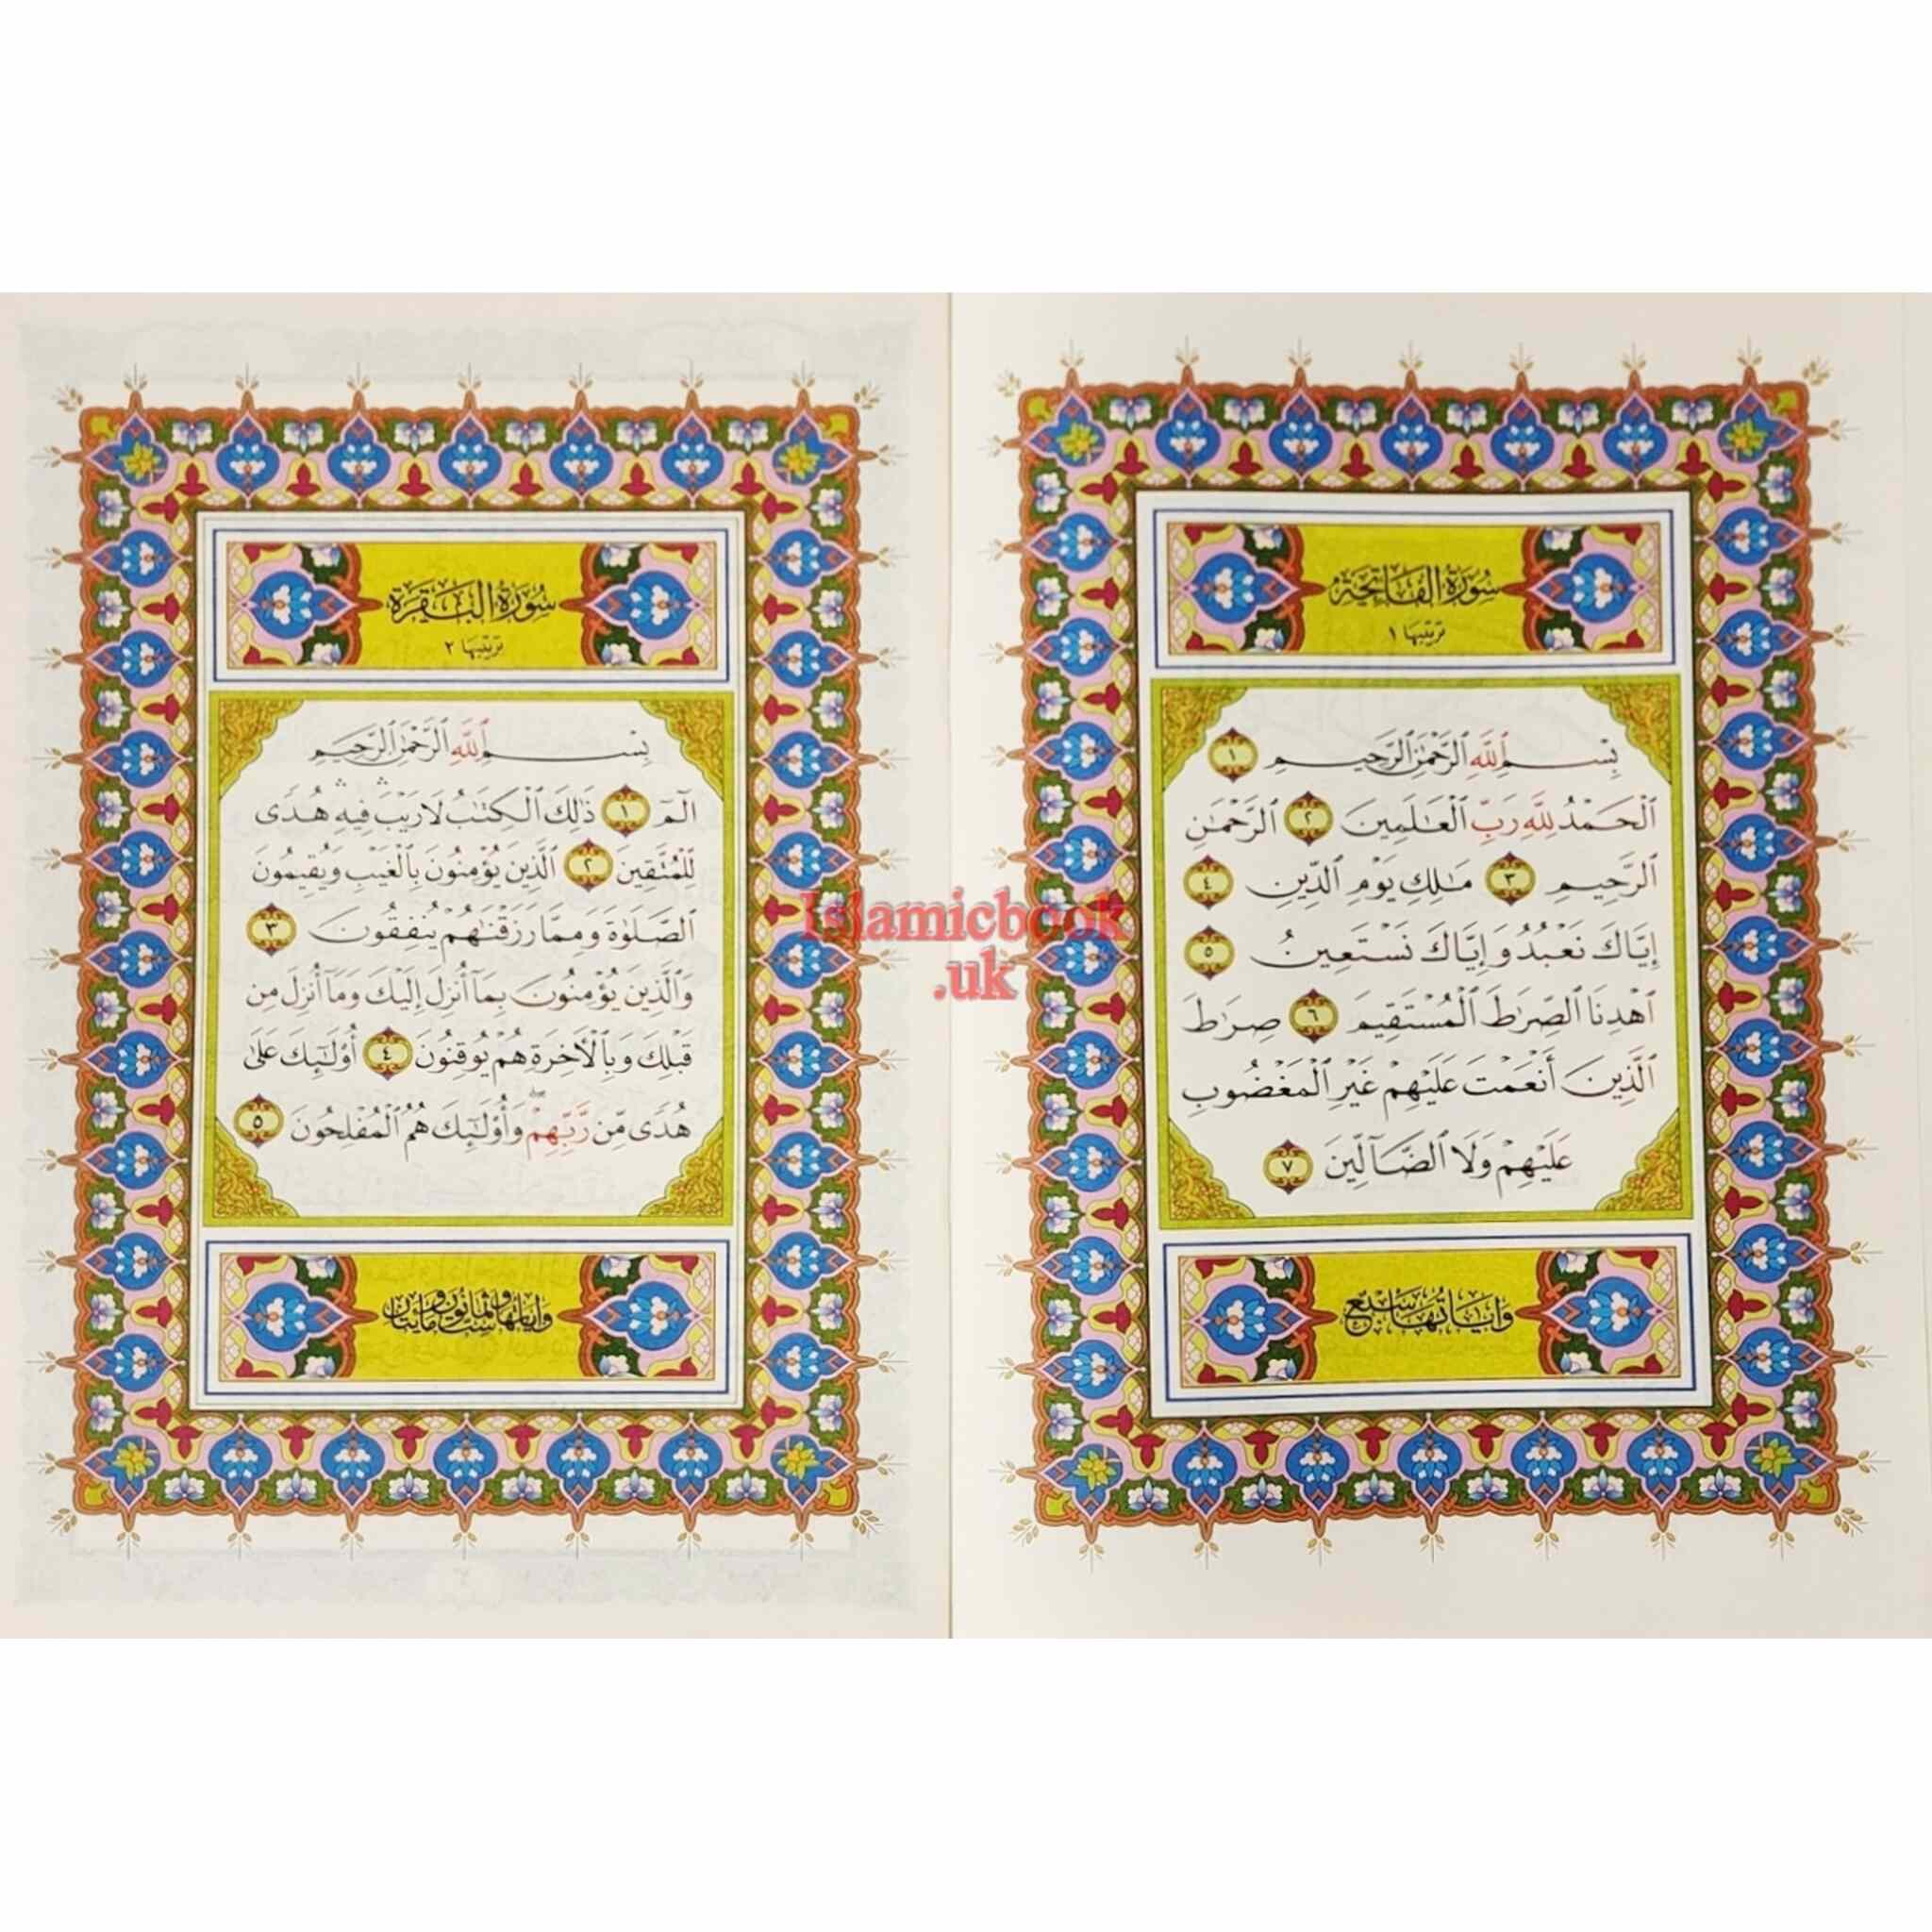 سُورَةُ الفَاتِحَةِ
ترتيبها ١
بِسْمِ ٱللَّهِ ٱلرَّحْمَٰنِ ٱلرَّحِيمِ ١
ٱلْحَمْدُ لِلَّهِ رَبِّ ٱلْعَٰلَمِينَ ٢ ٱلرَّحْمَٰنِ
ٱلرَّحِيمِ ٣ مَٰلِكِ يَوْمِ ٱلدِّينِ ٤
إِيَّاكَ نَعْبُدُ وَإِيَّاكَ نَسْتَعِينُ ٥
ٱهْدِنَا ٱلصِّرَٰطَ ٱلْمُسْتَقِيمَ ٦ صِرَٰطَ
ٱلَّذِينَ أَنْعَمْتَ عَلَيْهِمْ غَيْرِ ٱلْمَغْضُوبِ
عَلَيْهِمْ وَلَا ٱلضَّآلِّينَ ٧
وَآيَاتُهَا سَبْعٌ
سُورَةُ البَقَرَةِ
ترتيبها ٢
بِسْمِ ٱللَّهِ ٱلرَّحْمَٰنِ ٱلرَّحِيمِ
الٓمٓ ١ ذَٰلِكَ ٱلْكِتَٰبُ لَا رَيْبَ ۛ فِيهِ ۛ هُدًى
لِّلْمُتَّقِينَ ٢ ٱلَّذِينَ يُؤْمِنُونَ بِٱلْغَيْبِ وَيُقِيمُونَ
ٱلصَّلَوٰةَ وَمِمَّا رَزَقْنَٰهُمْ يُنفِقُونَ ٣
وَٱلَّذِينَ يُؤْمِنُونَ بِمَآ أُنزِلَ إِلَيْكَ وَمَآ أُنزِلَ مِن
قَبْلِكَ وَبِٱلْأَخِرَةِ هُمْ يُوقِنُونَ ٤ أُو۟لَٰٓئِكَ عَلَىٰ
هُدًى مِّن رَّبِّهِمْ ۖ وَأُو۟لَٰٓئِكَ هُمُ ٱلْمُفْلِحُونَ ٥
وآياتها ست وثمانون ومائتان
Islamicbook
.uk